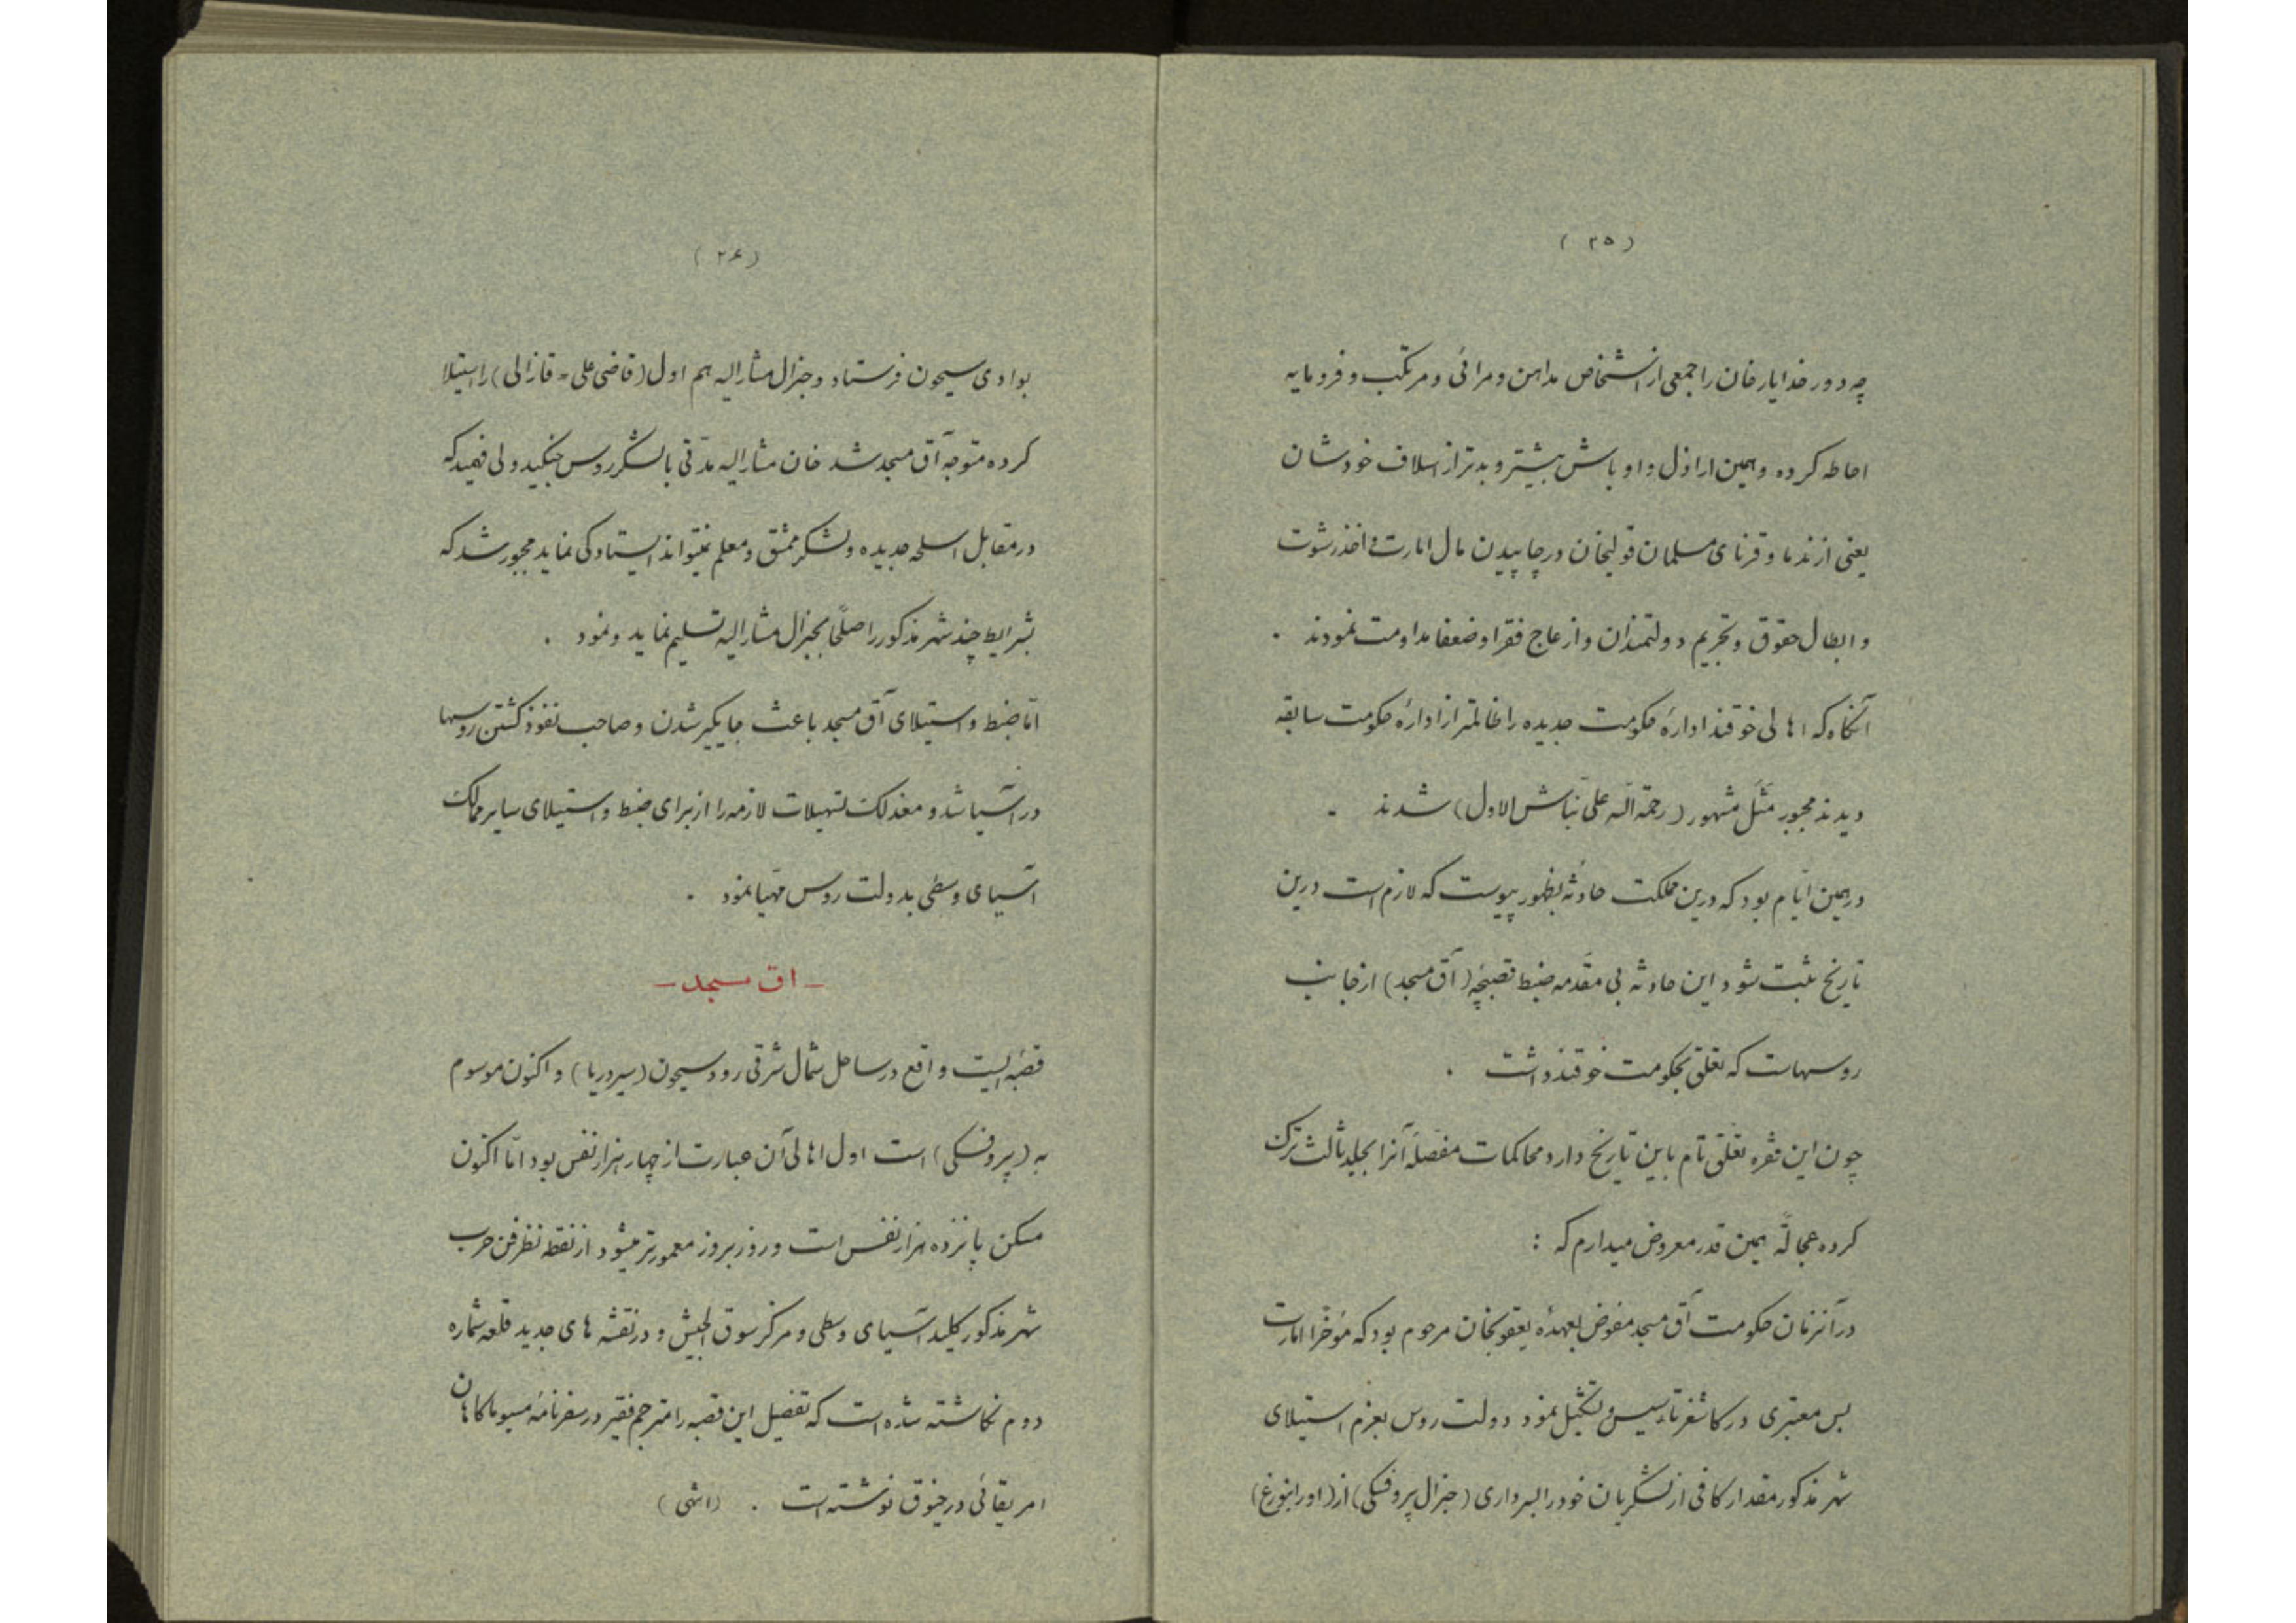 (۲۵)
چه دور خدایارخان را جمعی از اشخاص مداهن و مرائی و مرتکب و فرومایه
احاطه کرده و همین اراذل و اوباش بیشتر و بدتر از اسلاف خودشان
یعنی از ندما و قرنای مسلمان قولیخان در چاپیدن مال امارت و اخذ رشوت
و ابطال حقوق و تجریم دولتمندان و ازعاج فقرا و ضعفا مداومت نمودند ۰
آنگاه که اهالی خوقند ادارهٔ حکومت جدیده را ظالمتر از ادارهٔ حکومت سابقه
دیدند مجبور مَثَل مشهور (رحمة الله علی نبّاش الاول) شدند ۰
در همین ایّام بود که درین مملکت حادثهٔ بظهور پیوست که لازم است درین
تاریخ ثبت شود این حادثه بی مقدمه ضبط قصبچهٔ (آق مسجد) از جانب
روسهاست که تعلق بحکومت خوقند داشت ۰
چون این فقره تعلّق تام باین تاریخ دارد محاکمات مفصلهٔ آنرا بجلد ثالث ترک
کرده عجالةً همین قدر معروض میدارم که :
در آنزمان حکومت آق مسجد مفوض بعهدهٔ یعقوبخان مرحوم بود که مؤخراً امارت
بس معتبری در کاشغر تأسیس و تشکیل نمود دولت روس بعزم استیلای
شهر مذکور مقدار کافی از لشکریان خود را بسرداری (جنرال پروفسکی) از (اورانبورغ)
(۲۶)
بوادی سیحون فرستاد و جنرال مشارالیه هم اول (قاضی علی = قازالی) را استیلا
کرده متوجه آق مسجد شد خان مشارالیه مدّتی با لشکر روس جنگید ولی فهمید که
در مقابل اسلحهٔ جدیده و لشکر ممشق و معلم نمیتواند ایستادگی نماید مجبور شد که
بشرایط چند شهر مذکور را صلحاً بجنرال مشارالیه تسلیم نماید و نمود ۰
امّا ضبط و استیلای آق مسجد باعث جایگیر شدن و صاحب نفوذ گشتن روسها
در آسیا شد و معذلک تسهیلات لازمه را از برای ضبط و استیلای سایر ممالک
آسیای وسطی بدولت روس مهیّا نمود ۰
— اق مسجد —
قصبه ایست واقع در ساحل شمال شرقی رود سیحون (سیردریا) و اکنون موسوم
به (پروفسکی) است اول اهالی آن عبارت از چهار هزار نفس بود امّا اکنون
مسکن پانزده هزار نفس است و روز بروز معمورتر میشود از نقطه نظر فن حرب
شهر مذکور کلید آسیای وسطی و مرکز سوق الجیش و در نقشه های جدید قلعه شماره
دوم نگاشته شده است که تفصیل این قصبه را مترجم فقیر در سفرنامهٔ مسیو ماکاهان
امریقائی در خیوق نوشته است ۰ (انتهی)